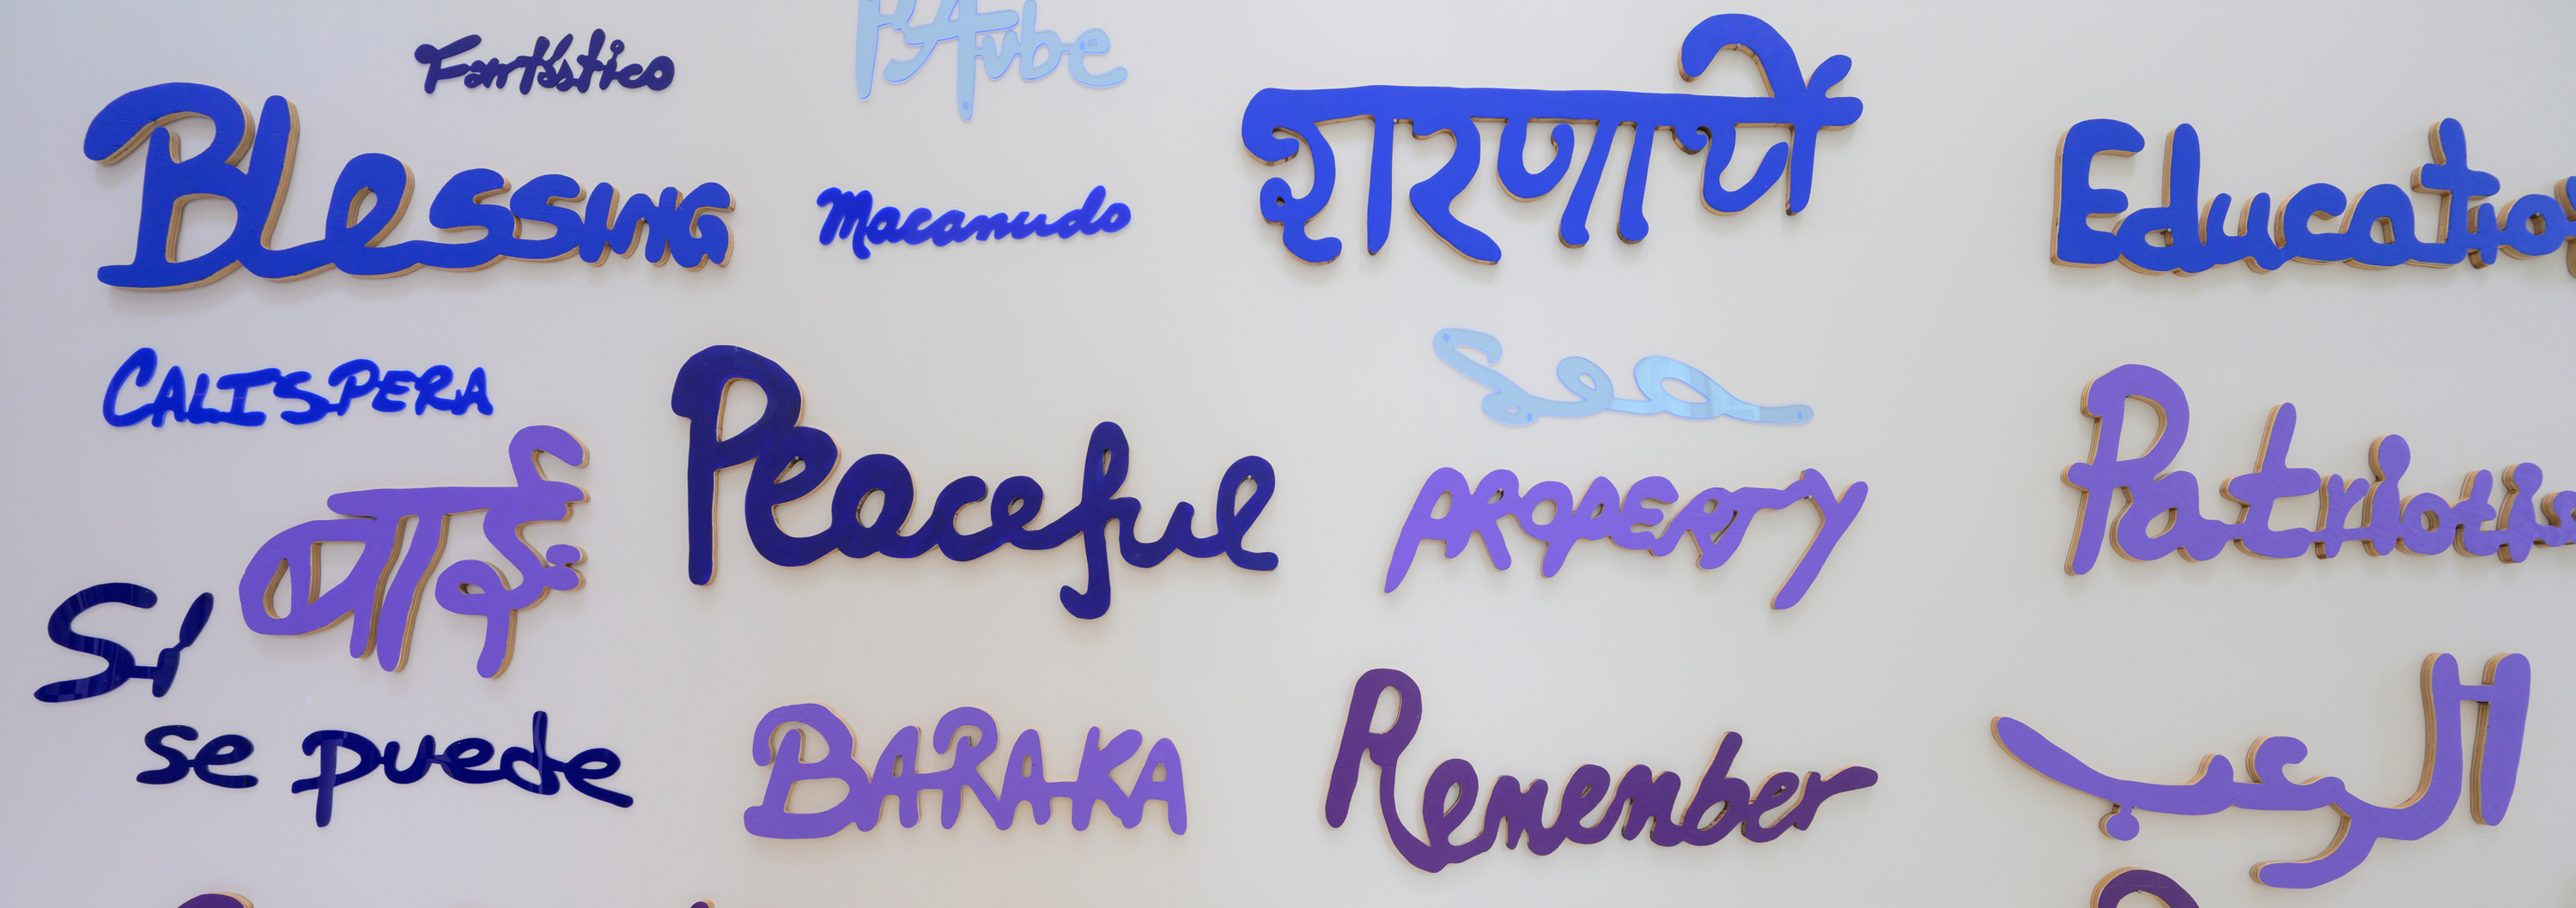 Fantástico
BAube
Blessing
Macanudo
शरणार्थी
Educatio
CALISPERA
Sea
Peaceful
PROPERTY
Patriotis
Sí
se puede
BARAKA
Remember